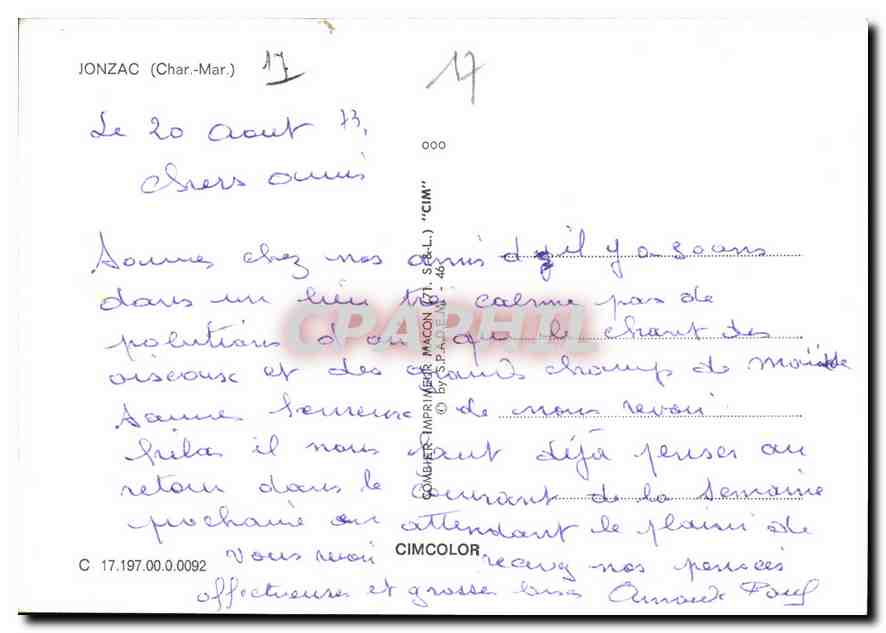 JONZAC (Char.-Mar.) 17 17
Le 20 Aout 73,
ooo
chers amis
Sommes chez nos amis d il y a 30 ans
dans un lieu très calme pas de
polutions d que le chant des
oiseaux et des grands champs de
Sommes heureux de nous revoir
hélas il nous faut déjà penser au
retour dans le courant de la semaine
prochaine en attendant le plaisir de
vous revoir recevez nos pensées
affectueuses et grosses bises
COMBIER IMPRIMEUR MACON (71. S.-&-L.) "CIM"
© by S.P.A.D.E.M. - 46
CPAPHIL
CIMCOLOR
C 17.197.00.0.0092